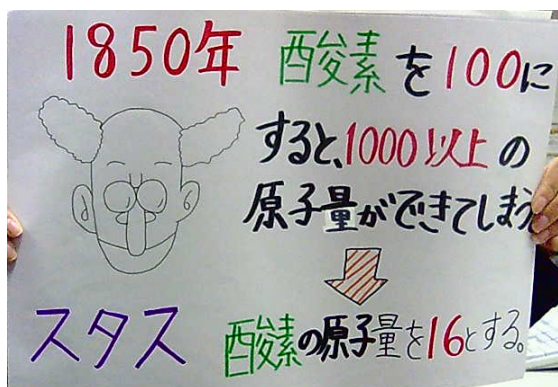 1850年 酸素を100に
すると、1000以上の
原子量ができてしまう
スタス 酸素の原子量を16とする。